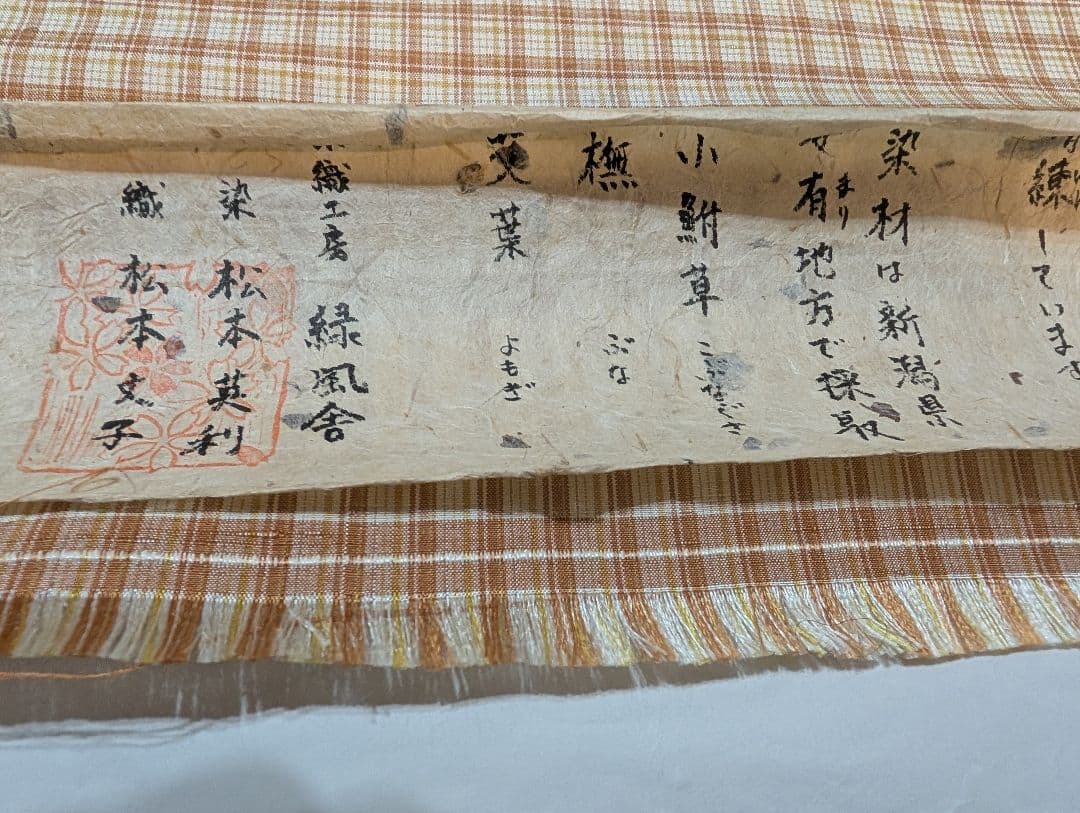 練していま
染材は新潟県
有地方で採取
まり
小鮒草 こぶなぐさ
橅 ぶな
艾葉 よもぎ
織工房 緑風舎
染 松本英利
織 松本文子